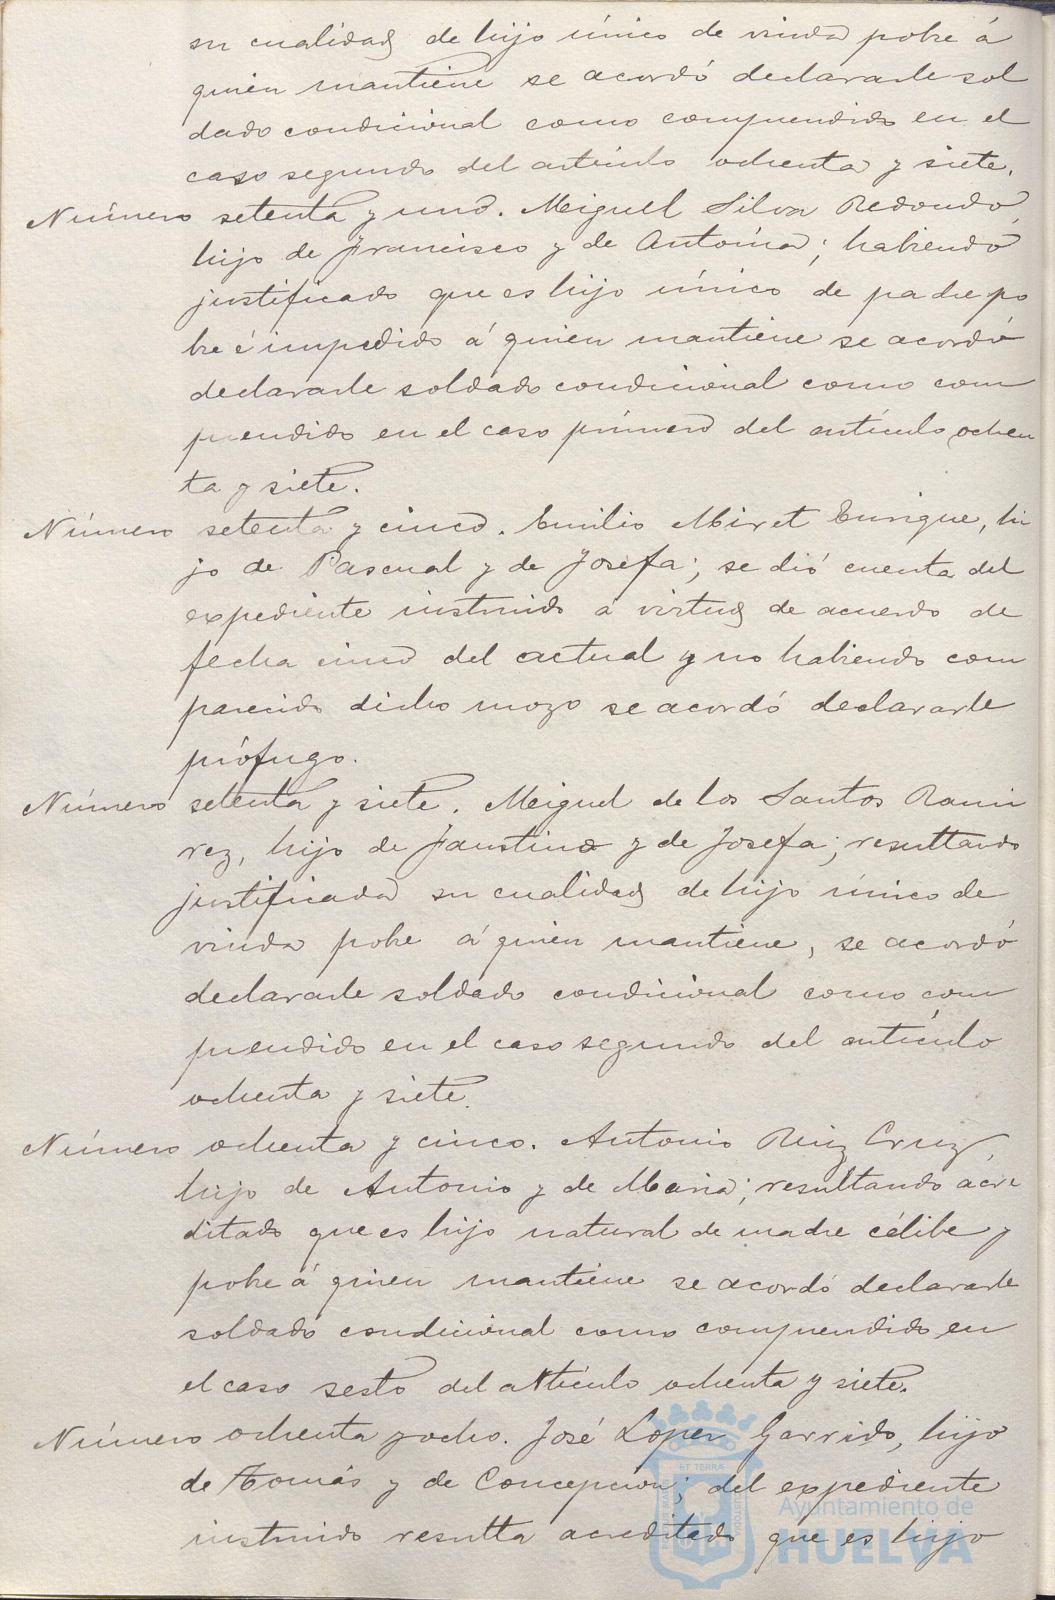 su cualidad de hijo único de viuda pobre á
quien mantiene se acordó declararle sol
dado condicional como comprendido en el
caso segundo del artículo ochenta y siete.
Número setenta y uno. Miguel Silva Redondo,
hijo de Francisco y de Antonia; habiendo
justificado que es hijo único de padre po
bre é impedido á quien mantiene se acordó
declararle soldado condicional como com
prendido en el caso primero del artículo ochen
ta y siete.
Número setenta y cinco. Emilio Miret Enrique, hi
jo de Pascual y de Josefa; se dió cuenta del
expediente instruido á virtud de acuerdo de
fecha cinco del actual y no habiendo com
parecido dicho mozo se acordó declararle
prófugo.
Número setenta y siete. Miguel de los Santos Rami
rez, hijo de Faustino y de Josefa; resultando
justificada su cualidad de hijo único de
viuda pobre á quien mantiene, se acordó
declararle soldado condicional como com
prendido en el caso segundo del artículo
ochenta y siete.
Número ochenta y cinco. Antonio Ruiz Cruz,
hijo de Antonio y de Maria; resultando acre
ditado que es hijo natural de madre célibe y
pobre á quien mantiene se acordó declararle
soldado condicional como comprendido en
el caso sesto del artículo ochenta y siete.
Número ochenta y ocho. José Lopez Garrido, hijo
de Tomás y de Concepcion; del expediente
instruido resulta acreditado que es hijo
ET TERRÆ
Ayuntamiento de
HUELVA